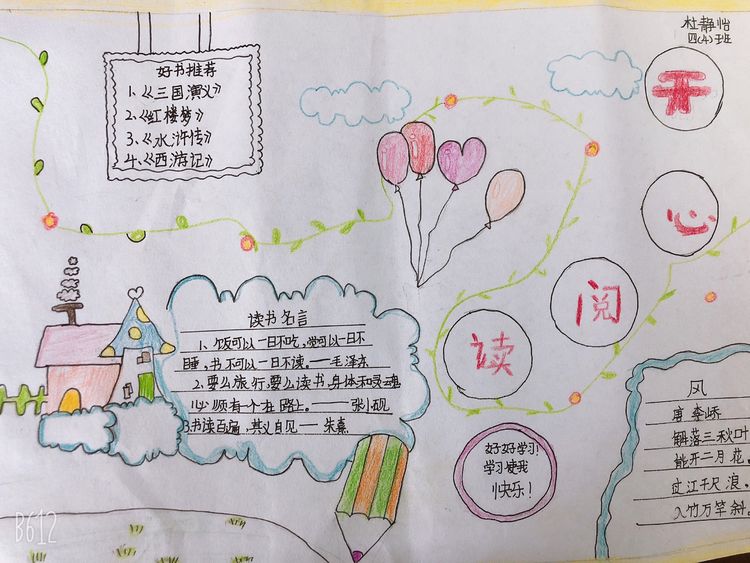 杜静怡
四(4)班
好书推荐
1、《三国演义》
2、《红楼梦》
3、《水浒传》
4、《西游记》
开
心
阅
读
读书名言
1、饭可以一日不吃,觉可以一日不
睡,书不可以一日不读。——毛泽东
2、要么旅行,要么读书,身体和灵魂
必须有一个在路上。——张小砚
3.书读百遍,其义自见——朱熹
好好学习!
学习使我
快乐!
风
唐 李峤
解落三秋叶
能开二月花。
过江千尺浪。
入竹万竿斜。
B612